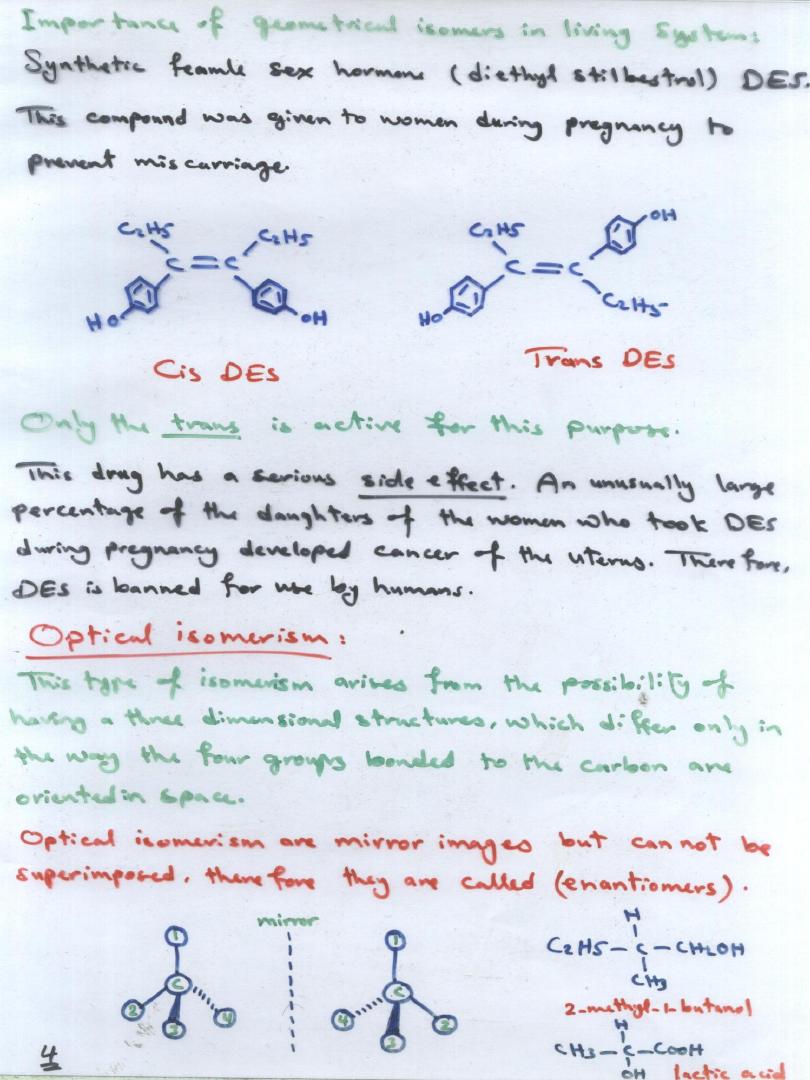 Importance of geometrical isomers in living Systems:
Synthetic feamle sex hormone (diethyl stilbestrol) DEs.
This compound was given to women during pregnancy to
prevent miscarriage.
C2H5 C2H5
C=C
HO OH
Cis DEs
C2H5 OH
C=C
HO C2H5
Trans DEs
Only the trans is active for this purpose.
This drug has a serious side effect. An unusually large
percentage of the daughters of the women who took DEs
during pregnancy developed cancer of the uterus. Therefore,
DEs is banned for use by humans.
Optical isomerism:
This type of isomerism arises from the possibility of
having a three dimensional structures, which differ only in
the way the four groups bonded to the carbon are
oriented in space.
Optical isomerism are mirror images but can not be
superimposed, therefore they are called (enantiomers).
mirror
1
C
2 3 4
1
C
4 3 2
H
C2H5-C-CH2OH
CH3
2-methyl-1-butanol
H
CH3-C-COOH
OH lactic acid
4